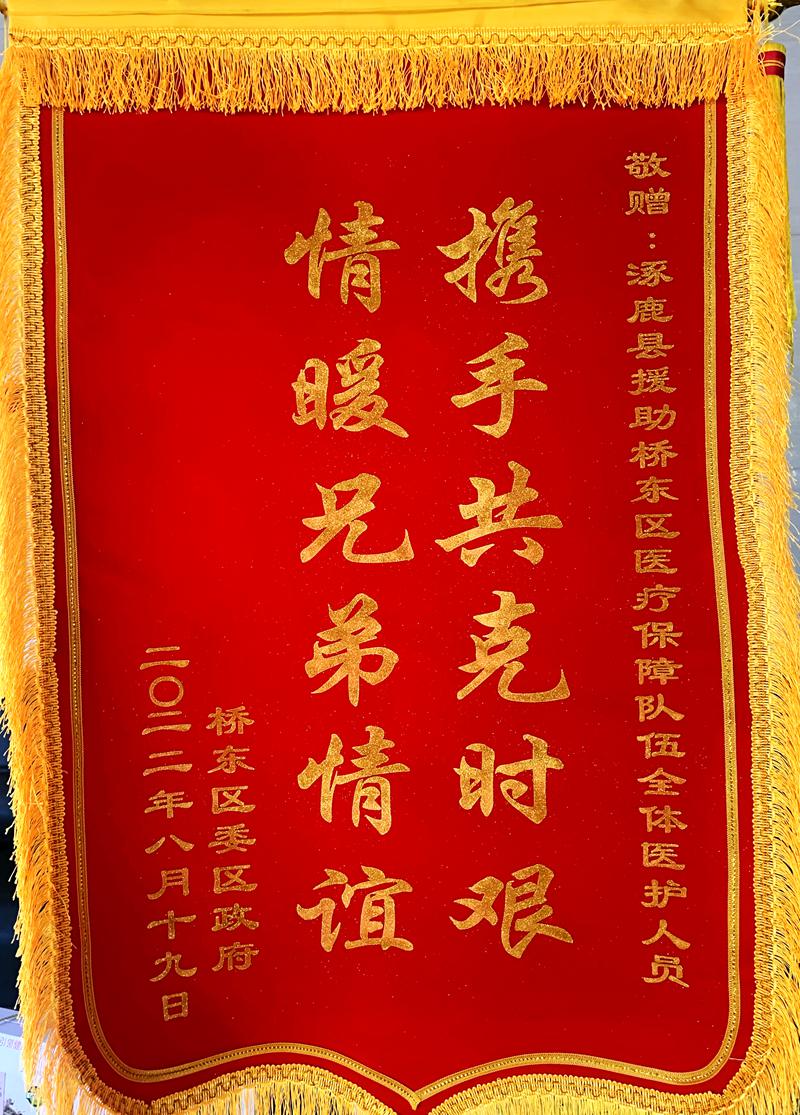 敬赠：涿鹿县援助桥东区医疗保障队伍全体医护人员
携手共克时艰
情暖兄弟情谊
桥东区委区政府
二〇二二年八月十九日